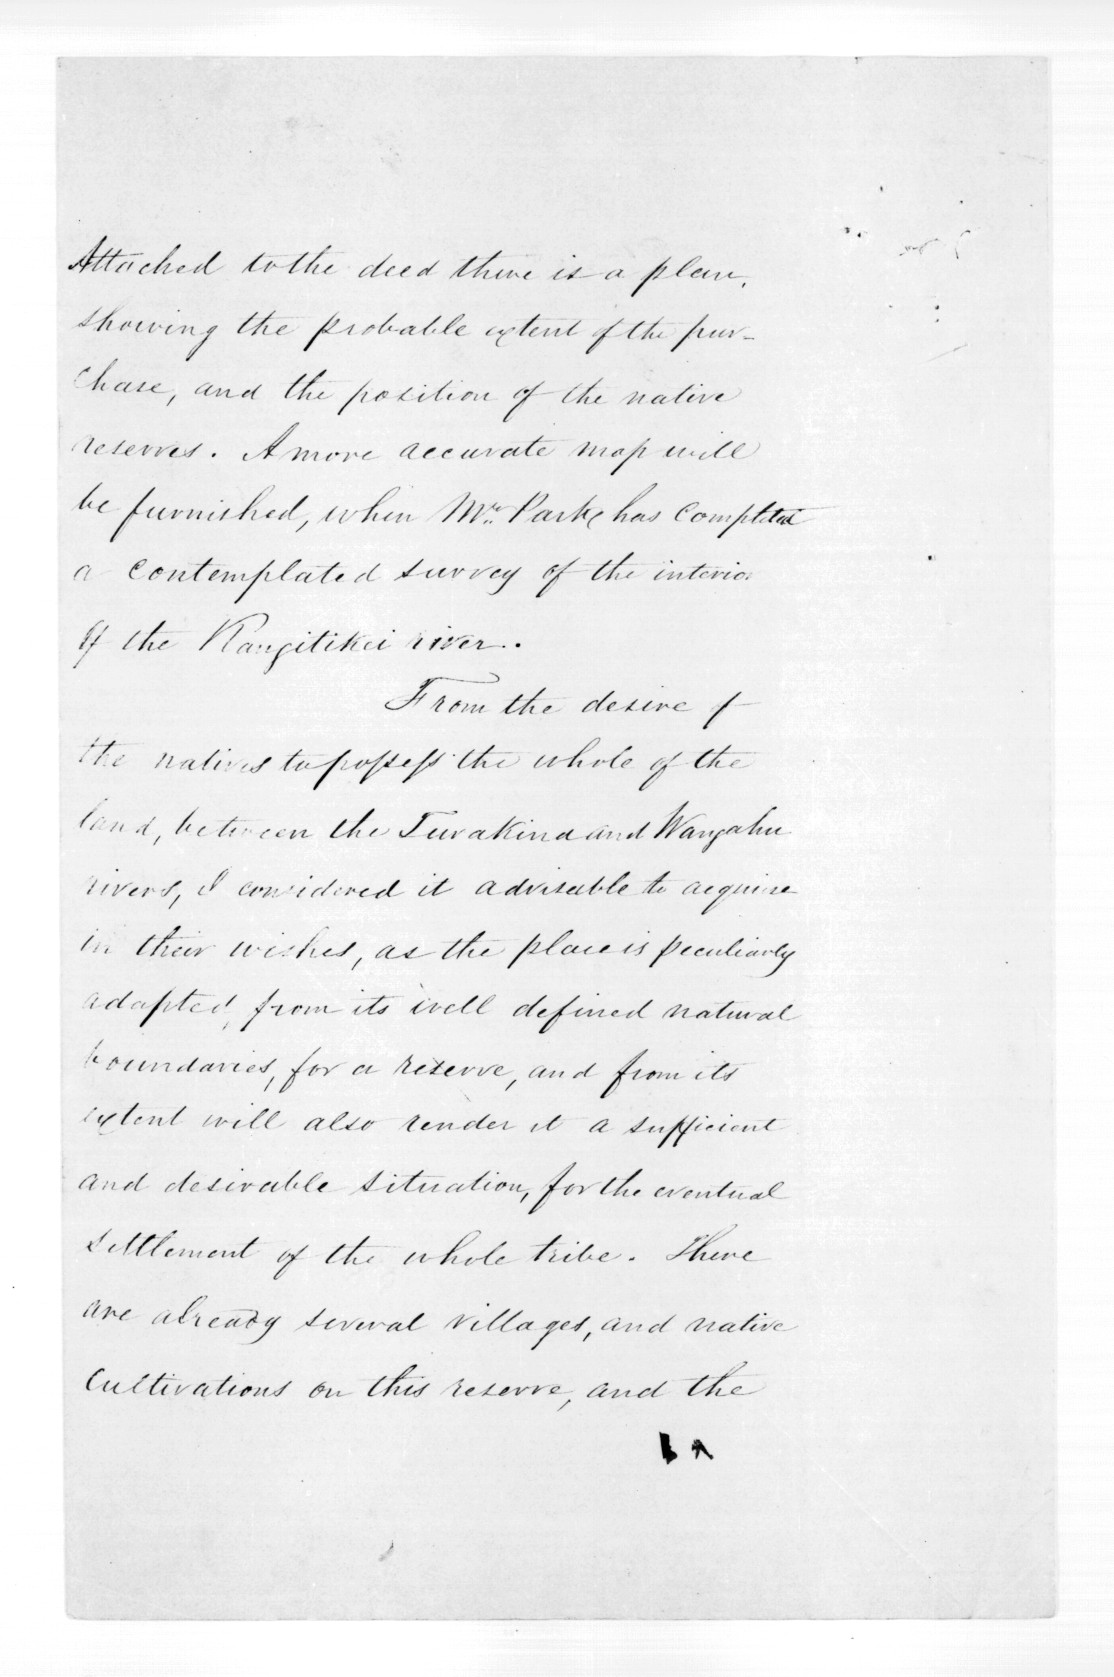 Attached to the deed there is a plan,
showing the probable extent of the pur-
chase, and the position of the native
reserves. A more accurate map will
be furnished, when Mr. Park has completed
a contemplated survey of the interior
of the Rangitikei river.
From the desire of
the natives to possess the whole of the
land, between the Turakina and Wangahu
rivers, I considered it adviseable to acquiese
in their wishes, as the place is peculiarly
adapted, from its well defined natural
boundaries, for a reserve, and from its
extent will also render it a sufficient
and desirable situation, for the eventual
settlement of the whole tribe. There
are already several villages, and native
cultivations on this reserve, and the